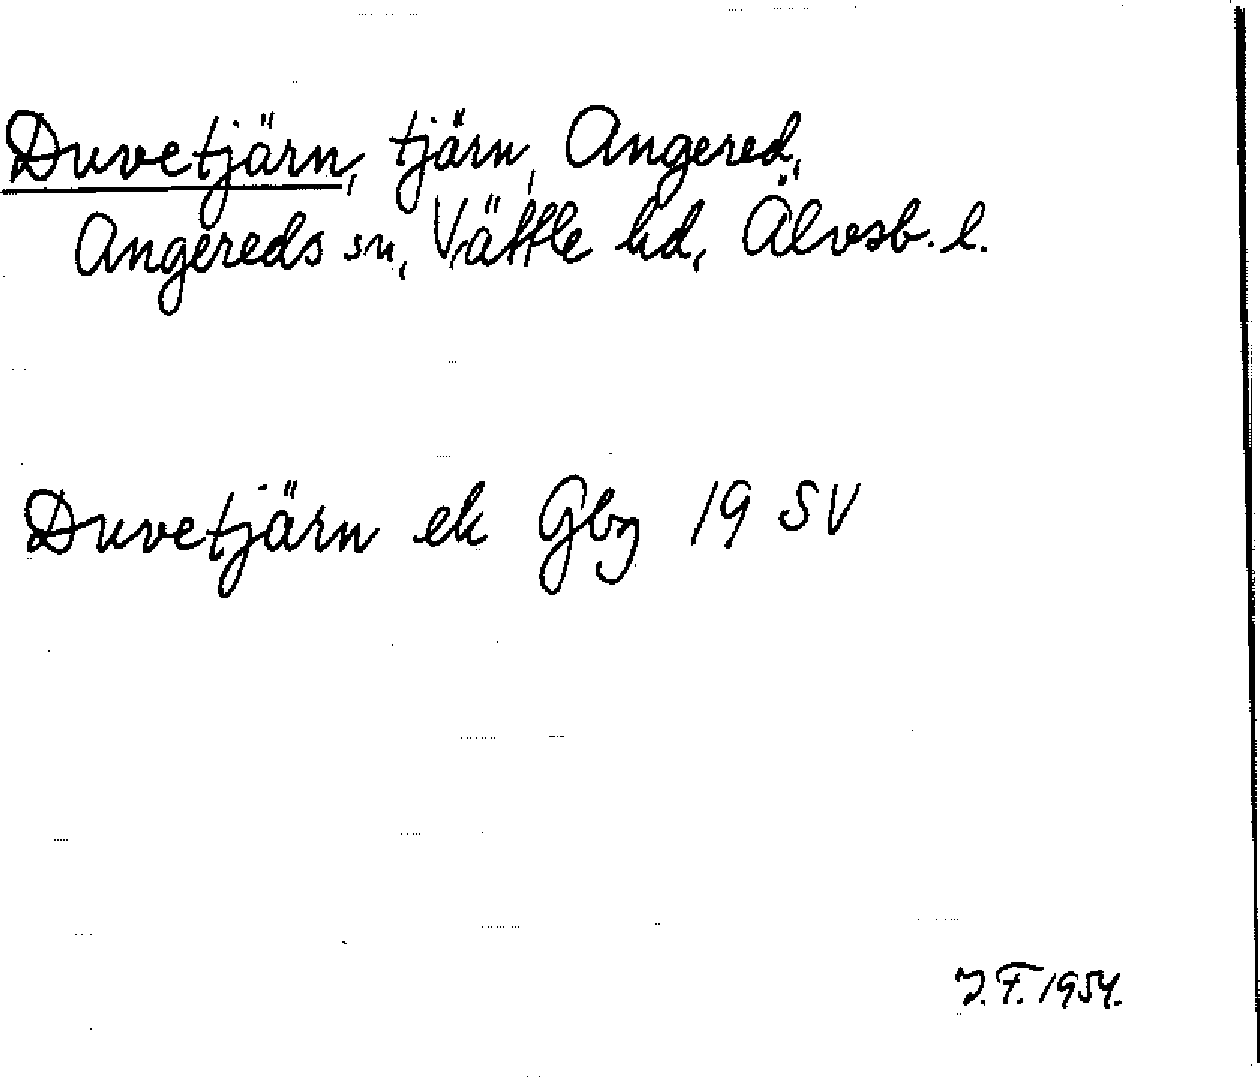 Duvetjärn, tjärn, Angered,
Angereds sn, Vättle hd, Älvsb. l.
Duvetjärn ek Gbg 19 SV
J.F. 1954.